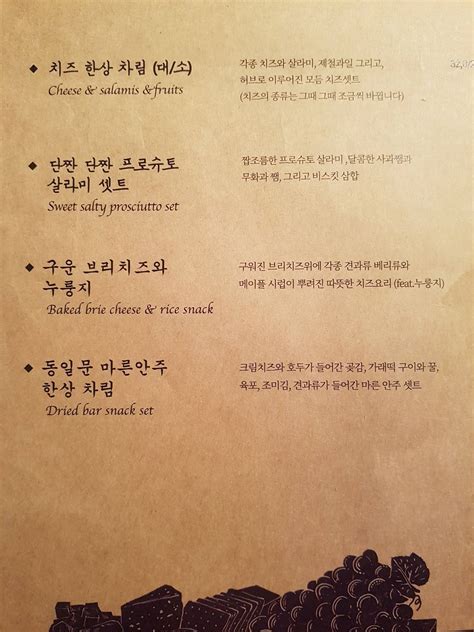 ◆ 치즈 한상 차림 (대/소)
Cheese & salamis & fruits
각종 치즈와 살라미, 제철과일 그리고,
허브로 이루어진 모듬 치즈셋트
(치즈의 종류는 그때 그때 조금씩 바뀝니다)
◆ 단짠 단짠 프로슈토
살라미 셋트
Sweet salty prosciutto set
짭조름한 프로슈토 살라미 ,달콤한 사과쨈과
무화과 쨈, 그리고 비스킷 삼합
◆ 구운 브리치즈와
누룽지
Baked brie cheese & rice snack
구워진 브리치즈위에 각종 견과류 베리류와
메이플 시럽이 뿌려진 따뜻한 치즈요리 (feat.누룽지)
◆ 동일문 마른안주
한상 차림
Dried bar snack set
크림치즈와 호두가 들어간 곶감, 가래떡 구이와 꿀,
육포, 조미김, 견과류가 들어간 마른 안주 셋트